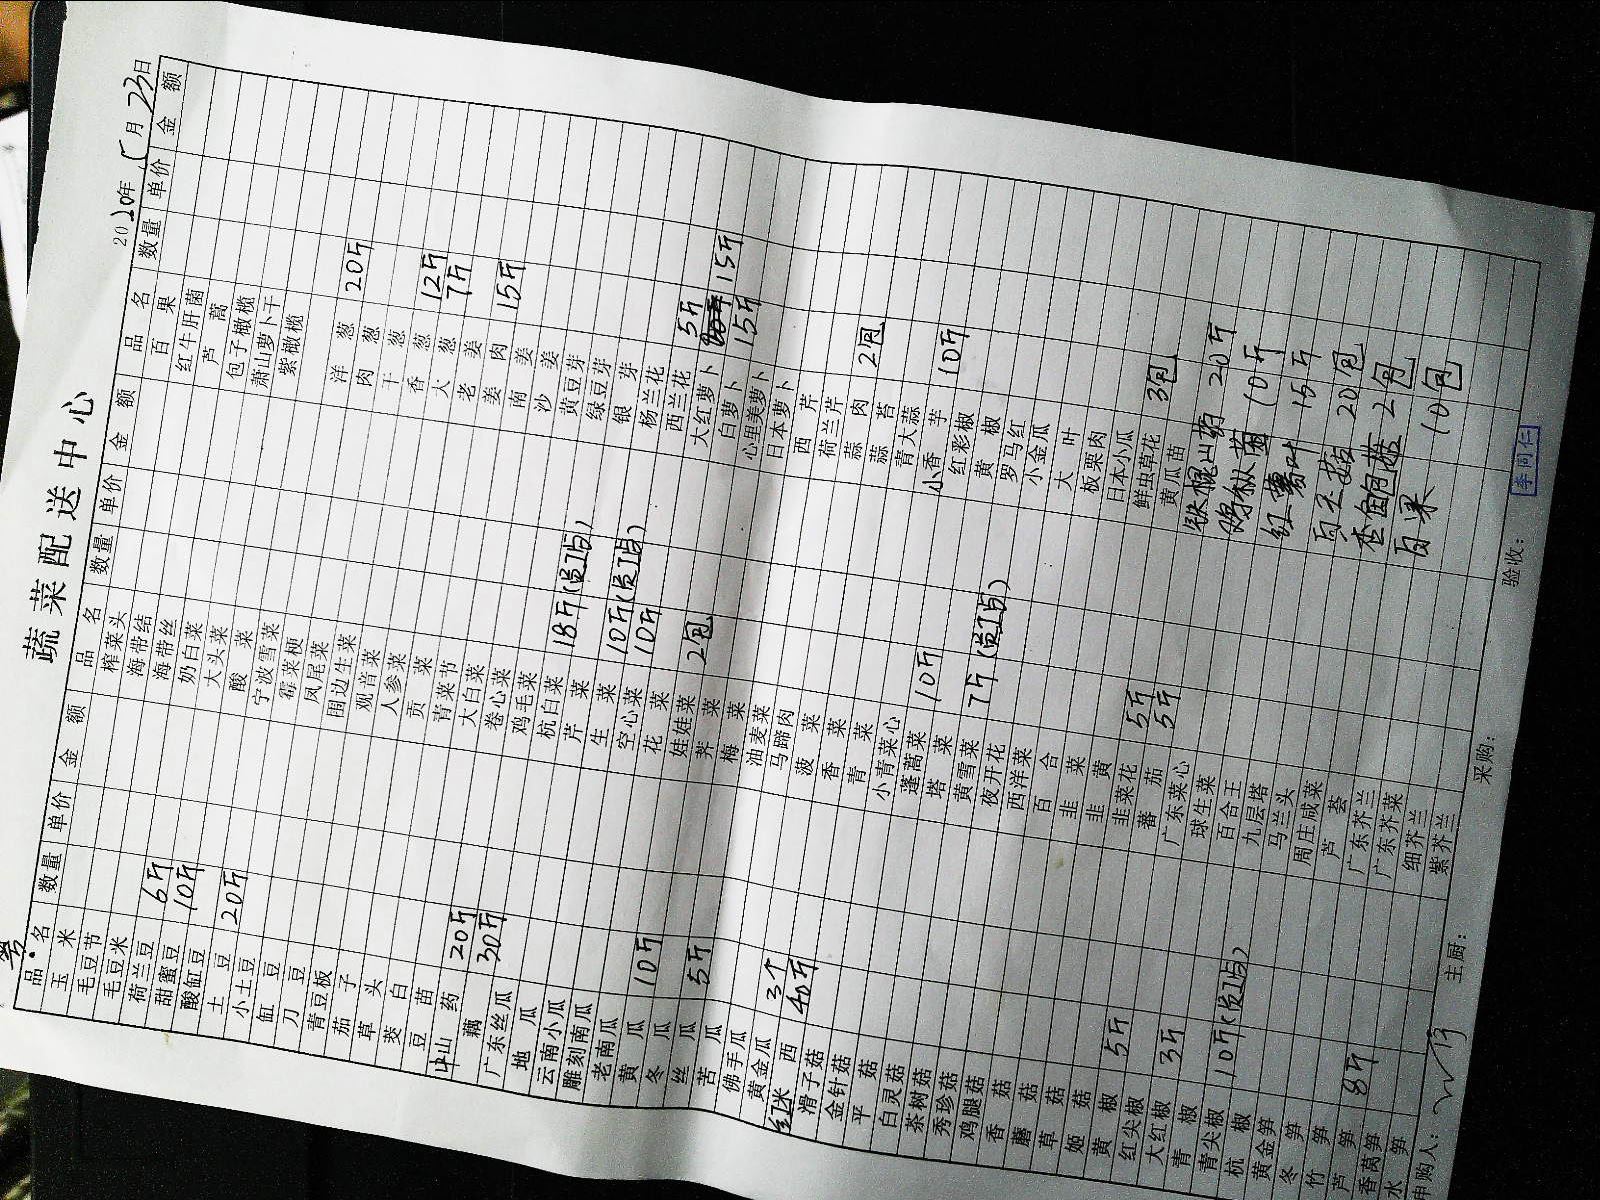 蔬菜配送中心
2020年5月23日
品名 数量 单价 金额 品名 数量 单价 金额 品名 数量 单价 金额
玉米
毛豆节
毛豆米
荷兰豆 6斤
甜蜜豆 10斤
酸缸豆
土豆 20斤
小土豆
缸豆
刀豆
青豆板
茄子
草头
茭白
豆苗
山药 20斤
藕 30斤
广东丝瓜
地瓜
云南小瓜
雕刻南瓜
老南瓜
黄瓜 10斤
冬瓜
丝瓜 5斤
苦瓜
佛手瓜
黄金瓜 3个
红米西 40斤
滑子菇
金针菇
平菇
白灵菇
茶树菇
秀珍菇
鸡腿菇
香菇
蘑菇
草菇
姬菇
黄椒 5斤
红尖椒
大红椒 3斤
青椒
青尖椒 10斤(员工点)
杭椒
黄金笋
冬笋
竹笋
芦笋 8斤
香莴笋
水笋
榨菜头
海带结
海带丝
奶白菜
大头菜
酸菜
宁波雪菜
霉菜梗
凤尾菜
围边生菜
观音菜
人参菜
贡菜
青菜节
大白菜
卷心菜
鸡毛菜
杭白菜 18斤(员工点)
芹菜
生菜 10斤(员工点)
空心菜 10斤
花菜
娃娃菜 2包
荠菜
梅菜
油麦菜
马蹄肉
菠菜
香菜
青菜
小青菜心
蓬蒿菜 10斤
塔菜
黄雪菜 7斤(员工点)
夜开花
西洋菜
百合
韭菜
韭黄
韭菜花 5斤
番茄 5斤
广东菜心
球生菜
百合王
九层塔
马兰头
周庄咸菜
芦荟
广东芥兰
广东芥菜
细芥兰
紫芥兰
百果
红牛肝菌
芦蒿
包子橄榄
萧山萝卜干
紫橄榄
洋葱 20斤
肉葱
干葱
香葱 12斤
大葱 7斤
老姜
姜肉 15斤
南姜
沙姜
黄豆芽
绿豆芽
银芽
杨兰花
西兰花 5斤
大红萝卜 15斤
白萝卜 15斤
心里美萝卜
日本萝卜
西芹
荷兰芹
蒜肉 2包
蒜苔
青大蒜
小香芋 10斤
红彩椒
黄椒
罗马红
小金瓜
大叶
板栗肉
日本小瓜
鲜虫草花 3包
黄瓜苗
铁棍山药 20斤
鸡枞菌 10斤
红薯叶 15斤
白玉菇 20包
杏鲍菇 2包
白果 10包
申购人: 主厨: 采购: 验收: